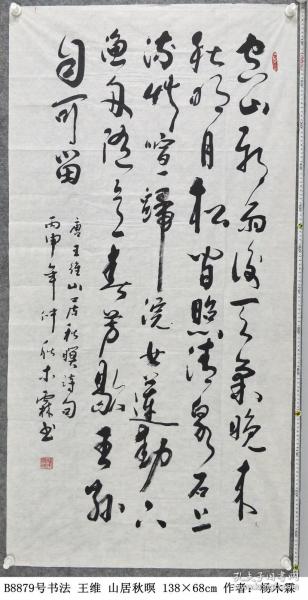 空山新雨後天氣晚來
秋明月松間照清泉石上
流竹喧歸浣女蓮動下
漁舟隨意春芳歇王孫
自可留
唐王維山居秋暝詩句
丙申年仲秋木霖书
B8879号书法 王维 山居秋暝 138×68cm 作者：杨木霖